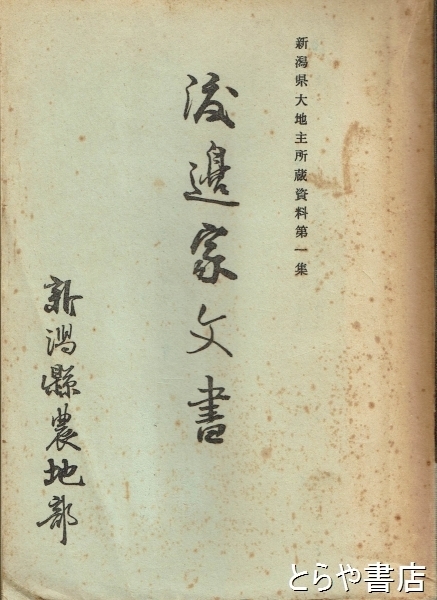 新潟県大地主所蔵資料第一集
渡邉家文書
新潟縣農地部
とらや書店